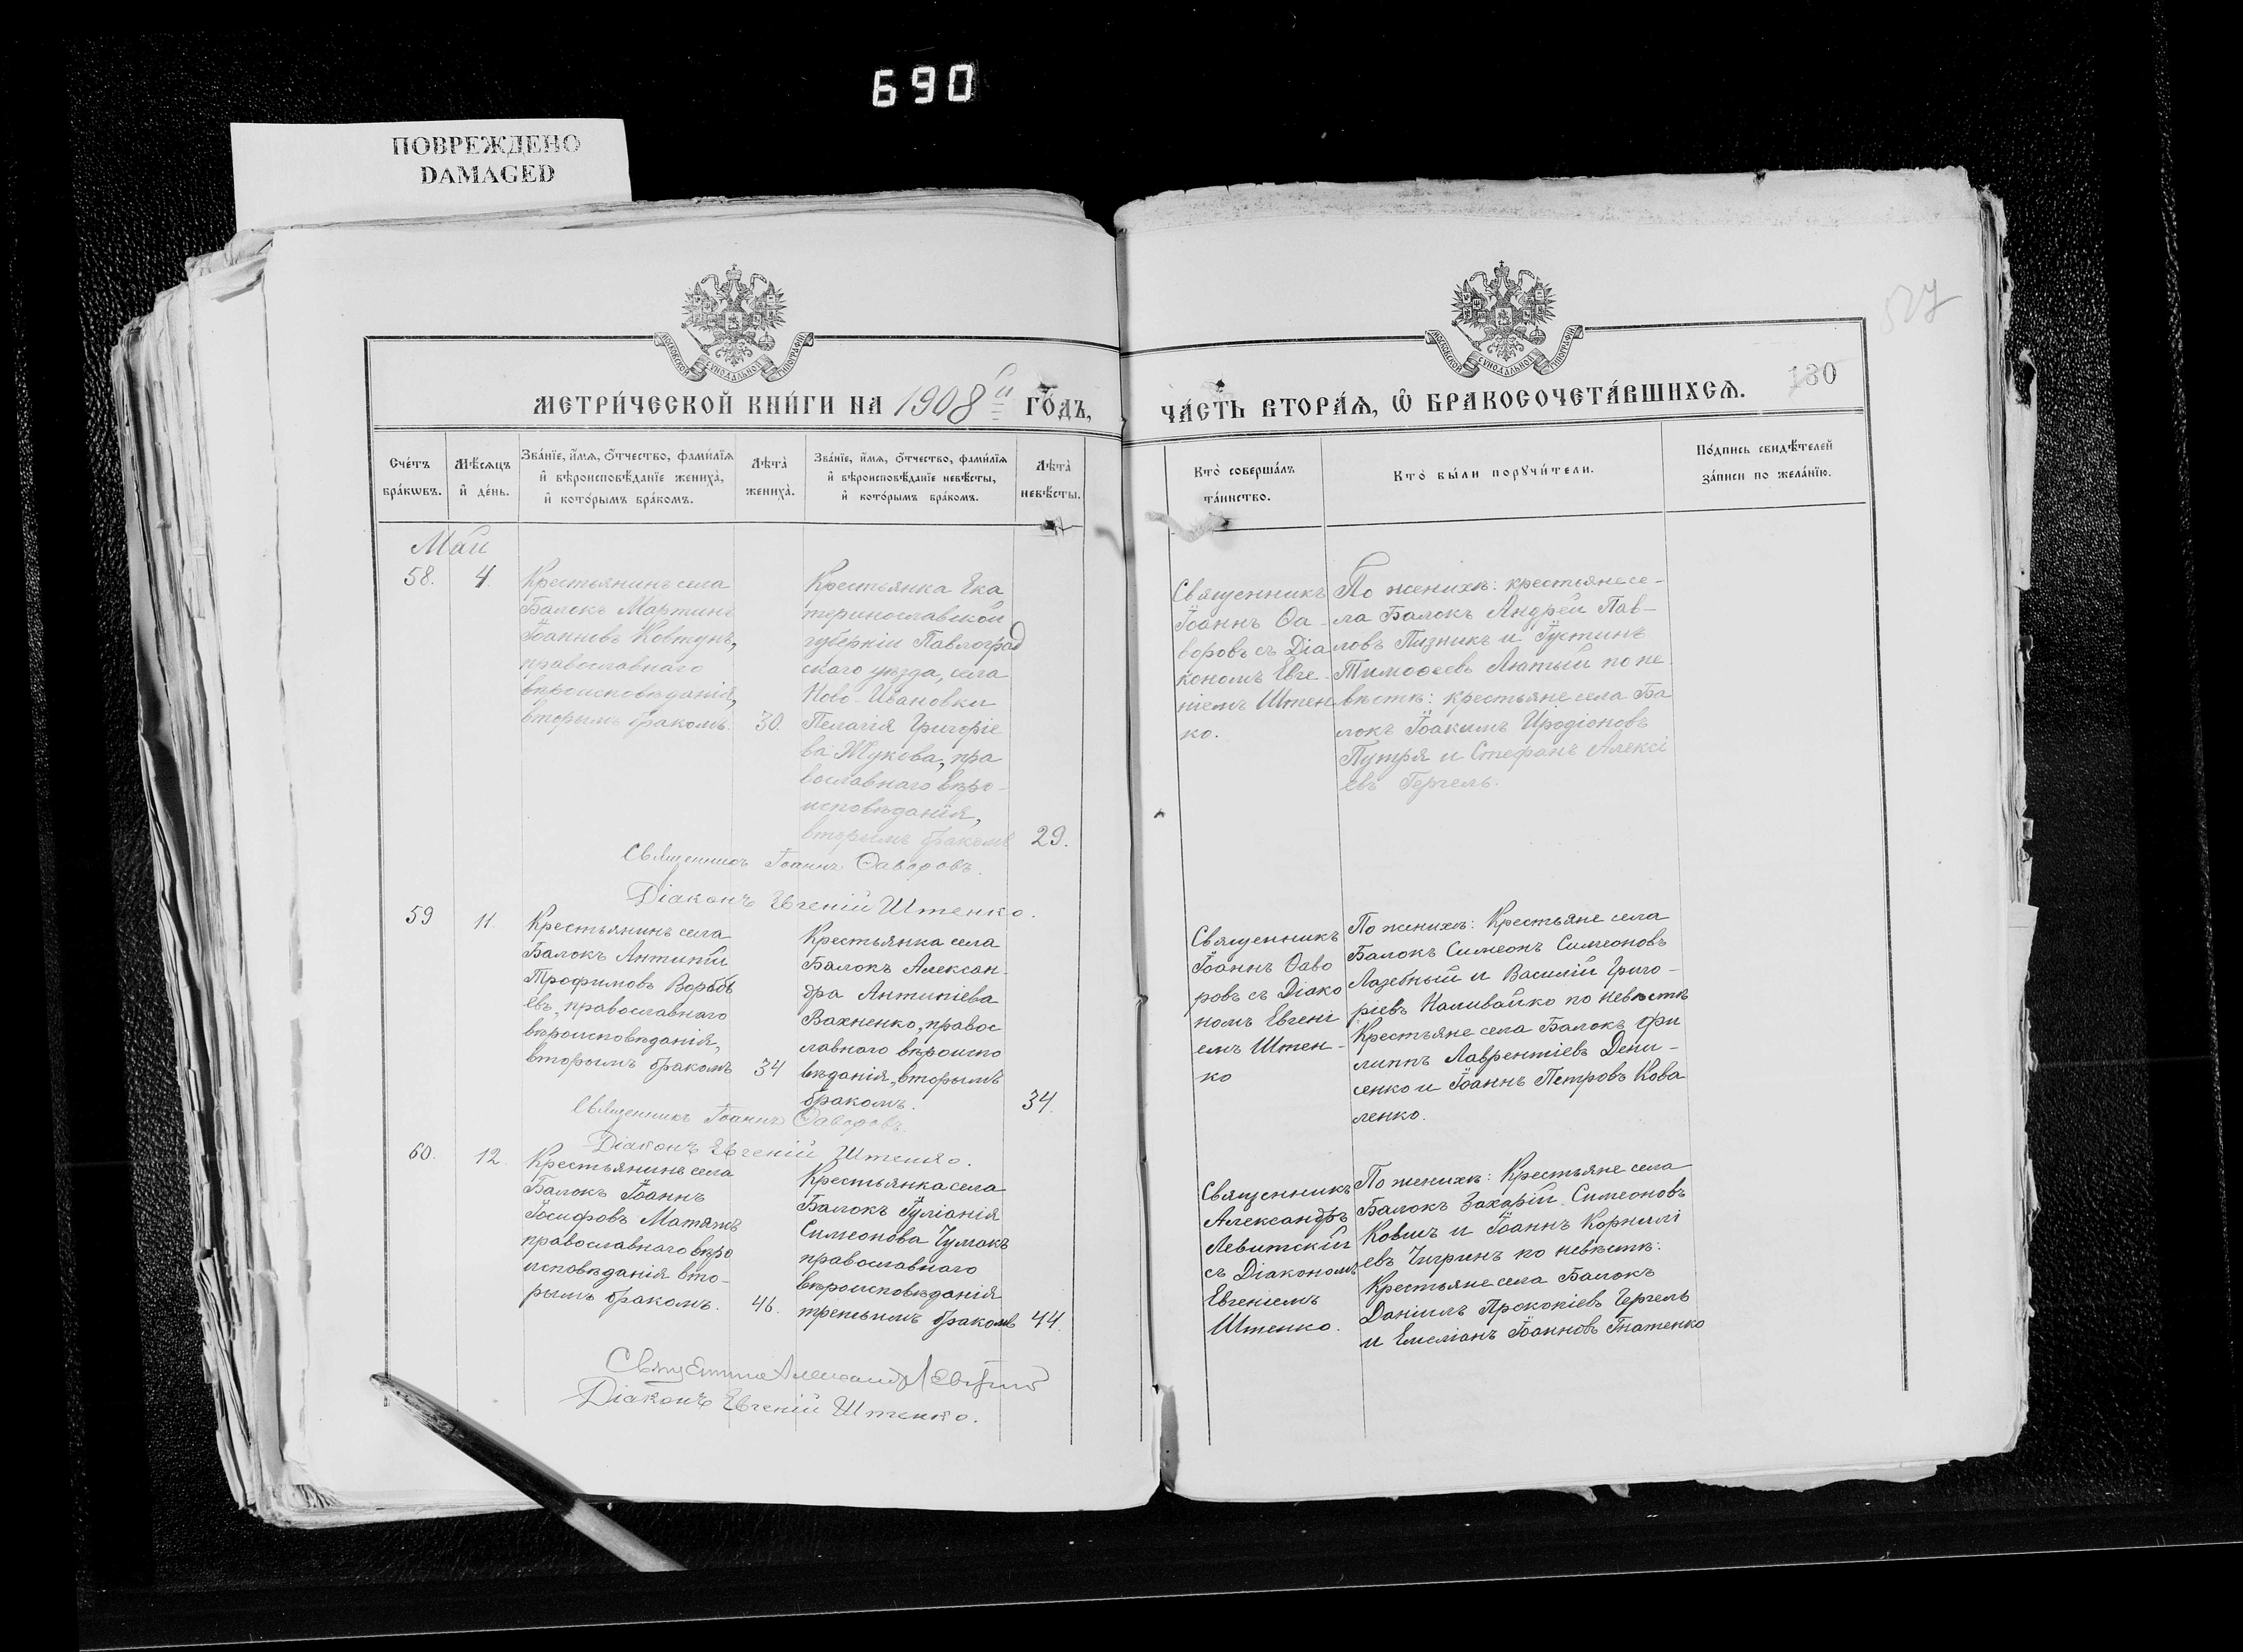 690
ПОВРЕЖДЕНО
DAMAGED
527
МОСКОВСКОЙ СѴНОДАЛЬНОЙ ТИПОГРАФІИ
МОСКОВСКОЙ СѴНОДАЛЬНОЙ ТИПОГРАФІИ
МЕТРИ́ЧЕСКОЙ КНИ́ГИ НА 1908й ГО́ДЪ,
ЧА́СТЬ ВТОРА́Ѧ, Ѽ БРАКОСОЧЕТА́ВШИХСѦ.
180
Сче́тъ
бра́кѡвъ.
Мѣ́сѧцъ
и҆ де́нь.
Зва́нїе, и҆́мѧ, ѻ҆́тчество, фами́лїѧ
и҆ вѣроисповѣ́данїе жениха̀,
и҆ кото́рымъ бра́комъ.
Лѣта̀
жениха̀.
Зва́нїе, и҆́мѧ, ѻ҆́тчество, фами́лїѧ
и҆ вѣроисповѣ́данїе невѣ́сты,
и҆ кото́рымъ бра́комъ.
Лѣта̀
невѣ́сты.
Кто̀ соверша́лъ
та́инство.
Кто̀ бы́ли порꙋчи́тели.
По́дпись свидѣ́телей
за́писи по жела́нїю.
Май
58.
4
Крестьянинъ села
Балокъ Мартинъ
Іоанновъ Ковтунъ,
православнаго
вѣроисповѣданія,
вторымъ бракомъ.
30.
Крестьянка Ека
теринославской
губерніи Павлоград
скаго уѣзда, села
Ново-Ивановки
Пелагія Григоріе
ва Жукова, пра
вославнаго вѣро-
исповѣданія,
вторымъ бракомъ
29.
Священникъ
Іоаннъ Ѳа-
воровъ съ Діа
кономъ Евге-
ніемъ Штен
ко.
По женихѣ: крестьяне се-
ла Балокъ Андрей Пав-
ловъ Пизникъ и Іустинъ
Тимоѳеевъ Лютый по не
вѣстѣ: крестьяне села Ба
локъ Іоакимъ Иродіоновъ
Путря и Стефанъ Алексі
евъ Гергель.
Священникъ Іоаннъ Ѳаворовъ.
Діаконъ Евгеній Штенко.
59
11.
Крестьянинъ села
Балокъ Антипій
Трофимовъ Воробь
евъ, православнаго
вѣроисповѣданія,
вторымъ бракомъ
34
Крестьянка села
Балокъ Алексан-
дра Антипіева
Вахненко, правос
лавнаго вѣроиспо
вѣданія, вторымъ
бракомъ.
34.
Священникъ
Іоаннъ Ѳаво
ровъ съ Діако
номъ Евгені
емъ Штен-
ко
По женихѣ: Крестьяне села
Балокъ Симеонъ Симеоновъ
Лазебный и Василій Григо-
ріевъ Наливайко по невѣстѣ
Крестьяне села Балокъ Фи
липпъ Лаврентіевъ Дени-
сенко и Іоаннъ Петровъ Кова
ленко.
Священникъ Іоаннъ Ѳаворовъ.
Діаконъ Евгеній Штенко.
60.
12.
Крестьянинъ села
Балокъ Іоаннъ
Іосифовъ Матяшъ
православнаго вѣро
исповѣданія вто-
рымъ бракомъ.
46.
Крестьянка села
Балокъ Іуліанія
Симеонова Чумакъ
православнаго
вѣроисповѣданія
третьимъ бракомъ
44.
Священникъ
Александръ
Левитскій
съ Діакономъ
Евгеніемъ
Штенко.
По женихѣ: Крестьяне села
Балокъ Захарій Симеоновъ
Ковшъ и Іоаннъ Корнилі
евъ Чигринъ по невѣстѣ:
Крестьяне села Балокъ
Даніилъ Прокопіевъ Гергель
и Емеліанъ Іоанновъ Гнатенко
Священникъ Александр Левитскій
Діаконъ Евгеній Штенко.